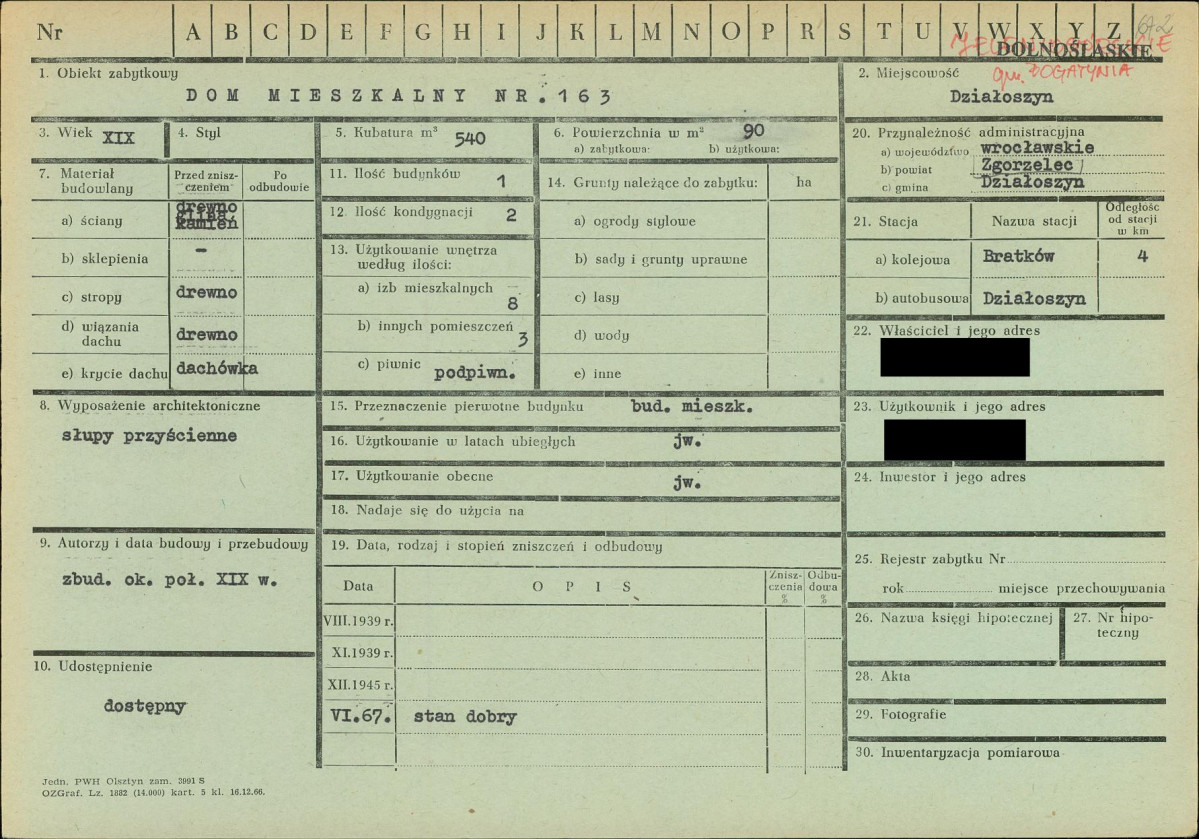 Nr A B C D E F G H I J K L M N O P R S T U V W X Y Z
672
DOLNOŚLĄSKIE
gm. BOGATYNIA
1. Obiekt zabytkowy
DOM MIESZKALNY NR.163
2. Miejscowość
Działoszyn
3. Wiek XIX
4. Styl
5. Kubatura m³ 540
6. Powierzchnia w m² 90
a) zabytkowa: b) użytkowa:
7. Materiał budowlany
Przed znisz-
czeniem
Po
odbudowie
a) ściany drewno
glina,
kamień
b) sklepienia –
c) stropy drewno
d) wiązania
dachu drewno
e) krycie dachu dachówka
8. Wyposażenie architektoniczne
słupy przyścienne
9. Autorzy i data budowy i przebudowy
zbud. ok. poł. XIX w.
10. Udostępnienie
dostępny
11. Ilość budynków 1
12. Ilość kondygnacji 2
13. Użytkowanie wnętrza
według ilości:
a) izb mieszkalnych 8
b) innych pomieszczeń 3
c) piwnic podpiwn.
14. Grunty należące do zabytku: ha
a) ogrody stylowe
b) sady i grunty uprawne
c) lasy
d) wody
e) inne
15. Przeznaczenie pierwotne budynku bud. mieszk.
16. Użytkowanie w latach ubiegłych jw.
17. Użytkowanie obecne jw.
18. Nadaje się do użycia na
19. Data, rodzaj i stopień zniszczeń i odbudowy
Data OPIS Znisz-
czenia
% Odbu-
dowa
%
VIII.1939 r.
XI.1939 r.
XII.1945 r.
VI.67. stan dobry
20. Przynależność administracyjna
a) województwo wrocławskie
b) powiat Zgorzelec
c) gmina Działoszyn
21. Stacja Nazwa stacji Odległość
od stacji
w km
a) kolejowa Bratków 4
b) autobusowa Działoszyn
22. Właściciel i jego adres
23. Użytkownik i jego adres
24. Inwestor i jego adres
25. Rejestr zabytku Nr
rok miejsce przechowywania
26. Nazwa księgi hipotecznej
27. Nr hipo-
teczny
28. Akta
29. Fotografie
30. Inwentaryzacja pomiarowa
Jedn. PWH Olsztyn zam. 3991 S
OZGraf. Lz. 1882 (14.000) kart. 5 kl. 16.12.66.